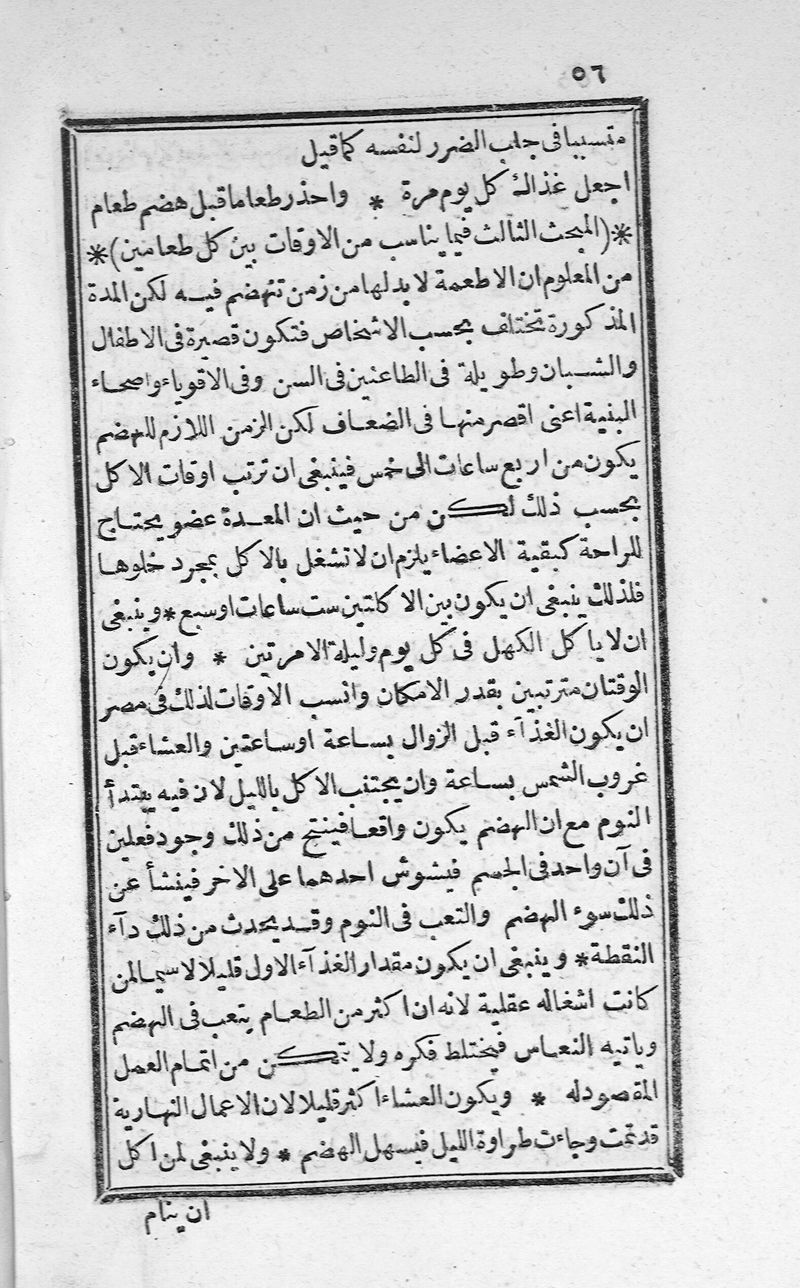 ٥٦
متسببا فى جلب الضرر لنفسه كما قيل
اجعل غذاك كل يوم مرة * واحذر طعاما قبل هضم طعام
*(المبحث الثالث فيما يناسب من الاوقات بين كل طعامين)*
من المعلوم ان الاطعمة لا بد لها من زمن تنهضم فيه لكن المدة
المذكورة تختلف بحسب الاشخاص فتكون قصيرة فى الاطفال
والشبان وطويلة فى الطاعنين فى السن وفى الاقوياء واصحاء
البنية اعنى اقصر منها فى الضعاف لكن الزمن اللازم للهضم
يكون من اربع ساعات الى خمس فينبغى ان ترتب اوقات الاكل
بحسب ذلك لكن من حيث ان المعدة عضو يحتاج
للراحة كبقية الاعضاء يلزم ان لا تشغل بالاكل بمجرد خلوها
فلذلك ينبغى ان يكون بين الاكلتين ست ساعات او سبع * وينبغى
ان لا ياكل الكهل فى كل يوم وليلة الا مرتين * وان يكون
الوقتان مترتبين بقدر الامكان وانسب الاوقات لذلك فى مصر
ان يكون الغذآء قبل الزوال بساعة او ساعتين والعشاء قبل
غروب الشمس بساعة وان يجتنب الاكل بالليل لان فيه يبتدأ
النوم مع ان الهضم يكون واقعا فينتج من ذلك وجود فعلين
فى آن واحد فى الجسم فيشوش احدهما على الاخر فينشأ عن
ذلك سوء الهضم والتعب فى النوم وقد يحدث من ذلك دآء
النقطة * وينبغى ان يكون مقدار الغذآء الاول قليلا لا سيما لمن
كانت اشغاله عقلية لانه ان اكثر من الطعام يتعب فى الهضم
وياتيه النعاس فيختلط فكره ولا يتمكن من اتمام العمل
المقصود له * ويكون العشاء اكثر قليلا لان الاعمال النهارية
قد تمت وجاءت طراوة الليل فيسهل الهضم * ولا ينبغى لمن اكل
ان ينام